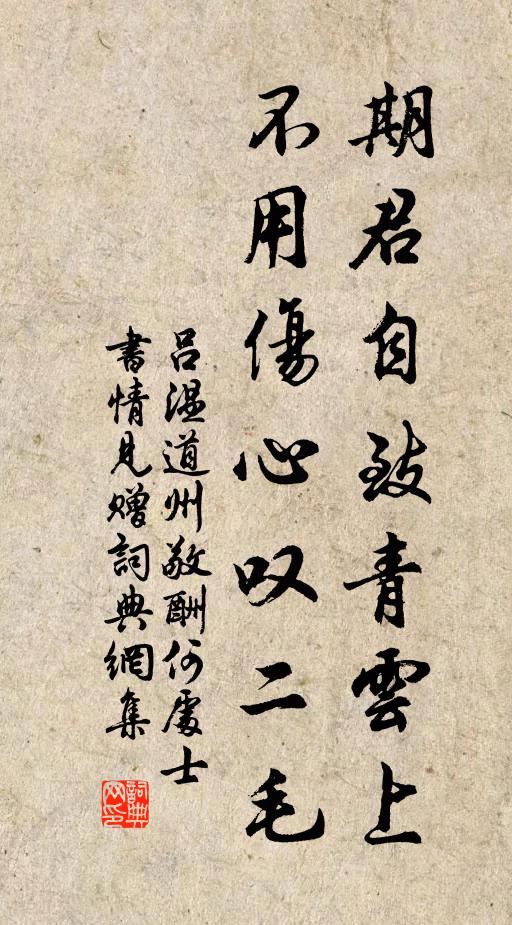 期君自致青雲上
不用傷心叹二毛
吕温道州敬酬何處士
書情見贈詞典網集
詞典
网印